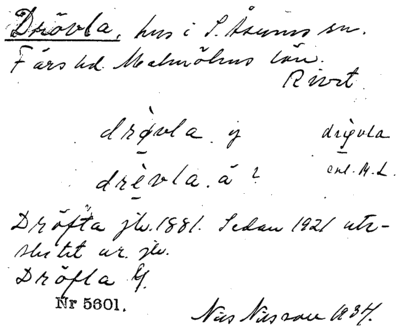 Drövla, hus i S. Åsums sn.
Färs hd. Malmöhus län.
Rivet.
drø̣vla y drø̣vla
drẹvla ä? enl. M. L.
Dröfta jb. 1881. Sedan 1921 ute-
slutet ur jb.
Dröfla Gf.
Nr 5601.
Nils Nilsson 1934.